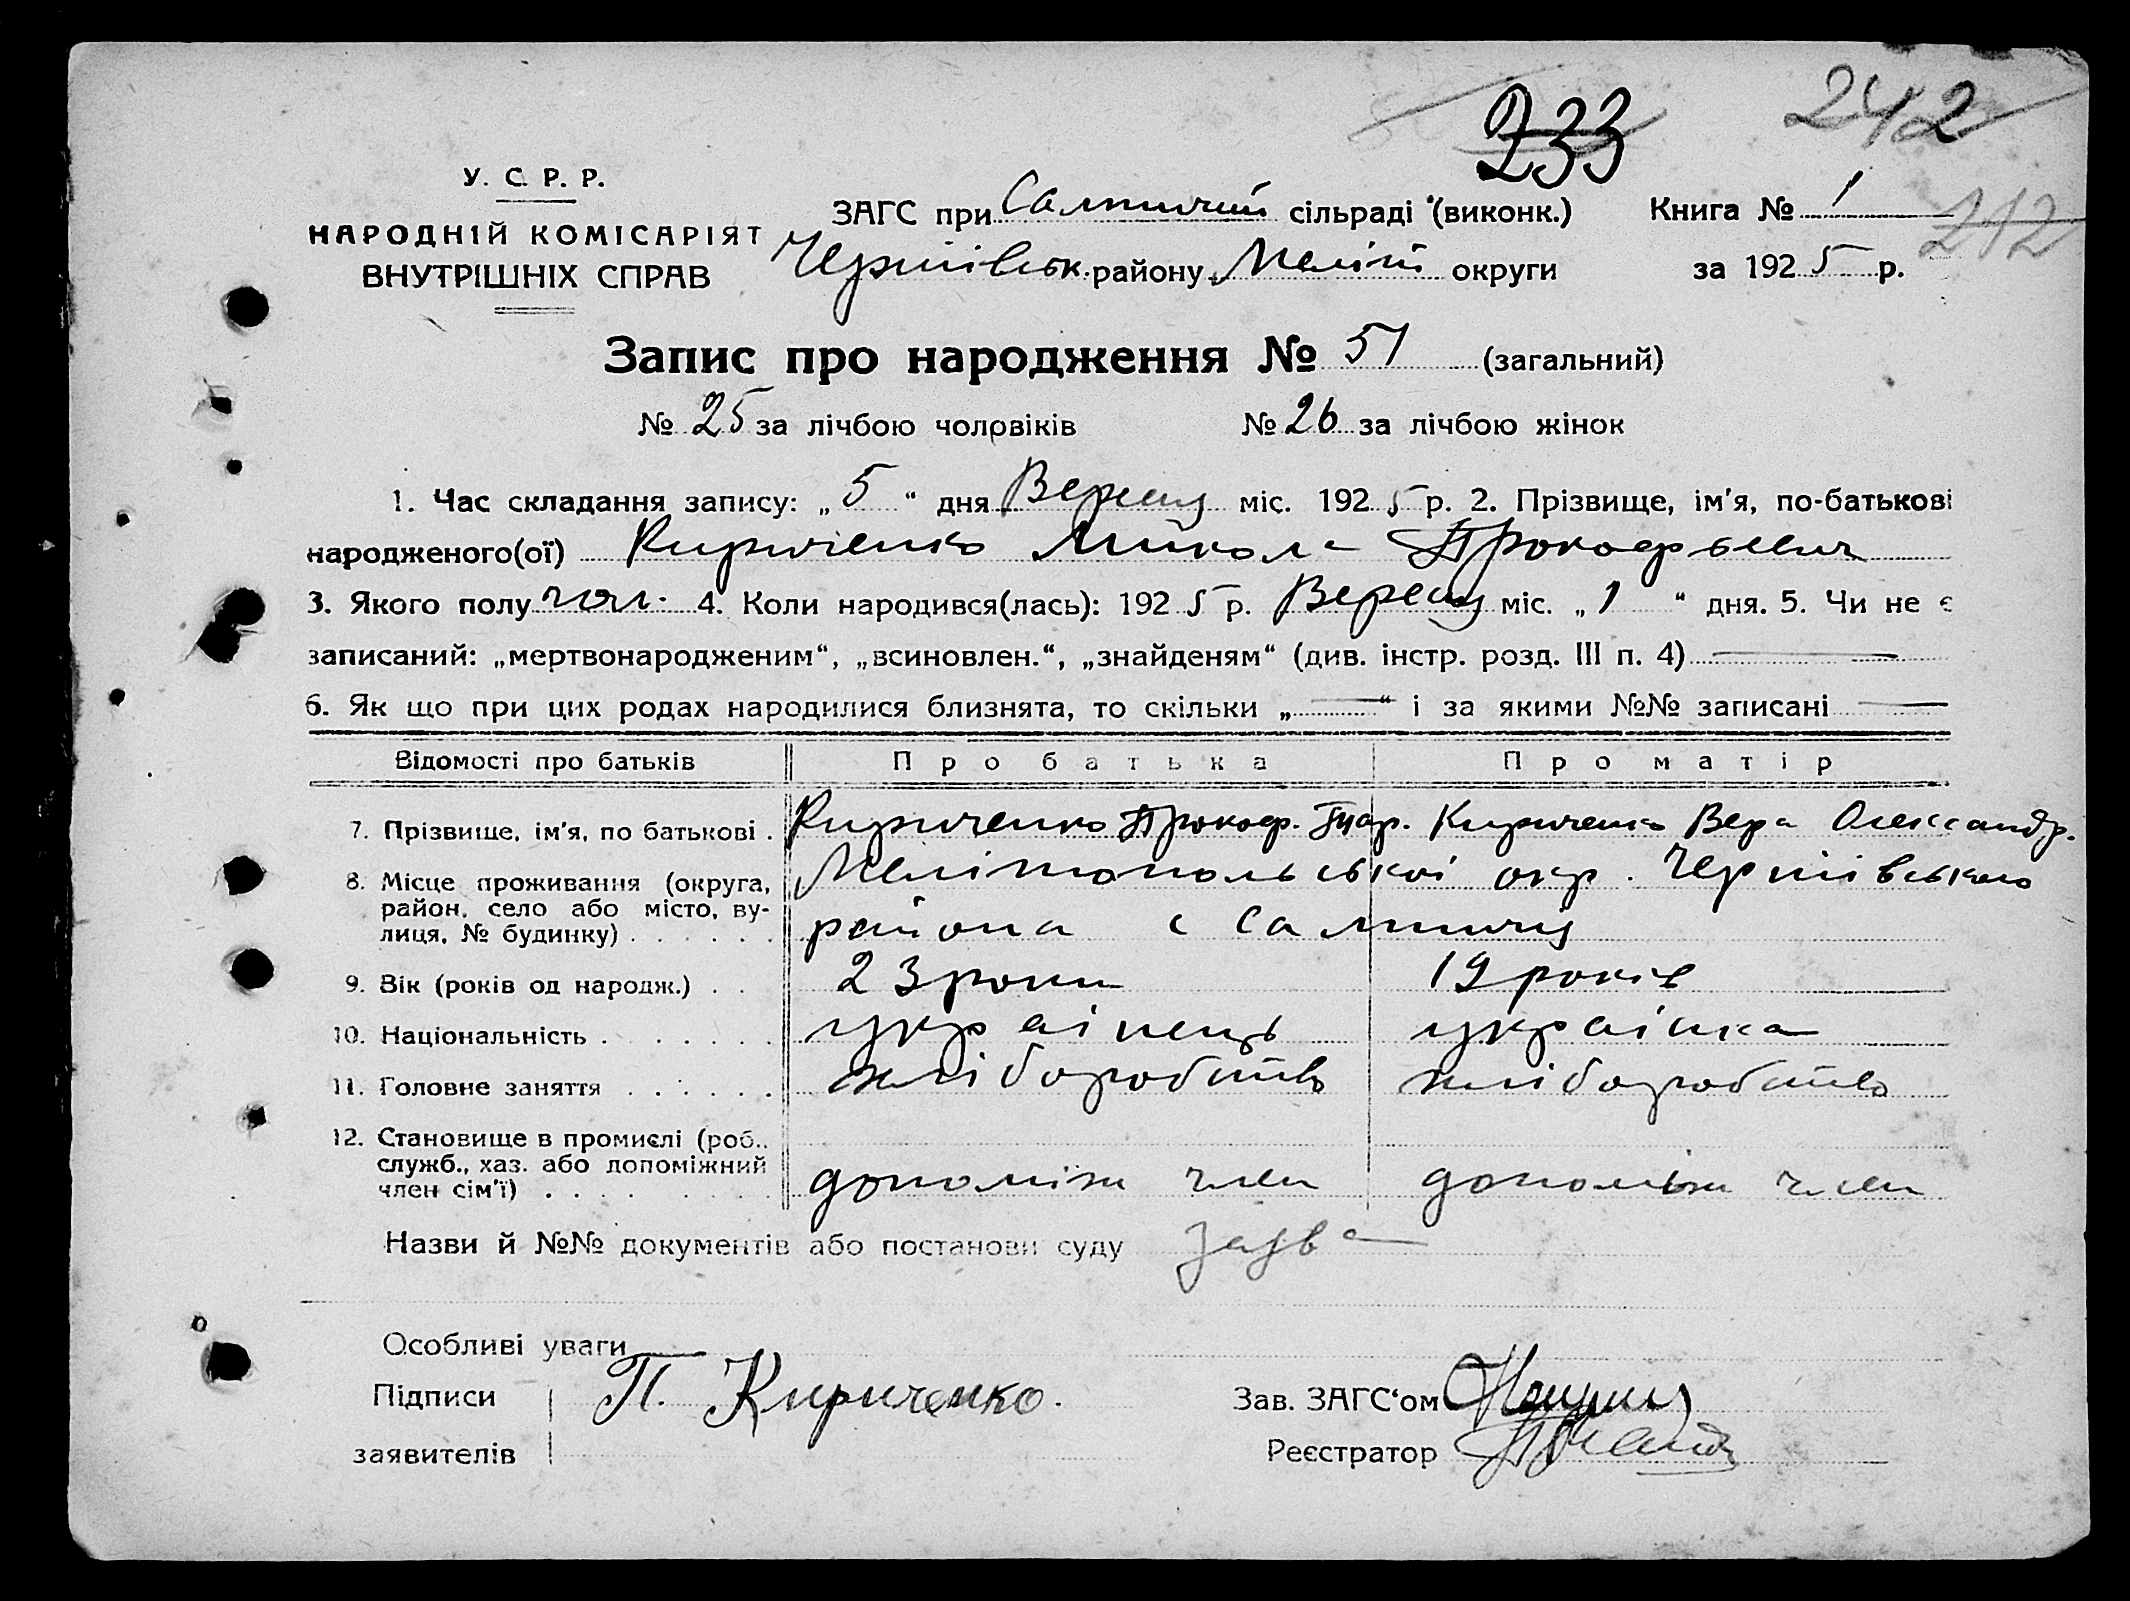 233
242
212
У. С. Р. Р.
НАРОДНІЙ КОМІСАРІЯТ
ВНУТРІШНІХ СПРАВ
ЗАГС при сільраді (виконк.)
Книга № 1
Чернівськ. району Меліт округи
за 1925 р.
Запис про народження № 51 (загальний)
№ 25 за лічбою чоловіків № 26 за лічбою жінок
1. Час складання запису: „5“ дня Вересня міс. 1925 р. 2. Прізвище, ім'я, по-батькові
народженого(ої) Кириченко Микола Прокофьевич
3. Якого полу чол. 4. Коли народився(лась): 1925 р. Вересня міс. „1“ дня. 5. Чи не є
записаний: „мертвонародженим“, „всиновлен.“, „знайденям“ (див. інстр. розд. III п. 4) —
6. Як що при цих родах народилися близнята, то скільки „—“ і за якими №№ записані —
Відомості про батьків Про батька Про матір
7. Прізвище, ім'я, по батькові . Кириченко Прокоф. Кириченко Вера Олександр.
8. Місце проживання (округа, район, село або місто, вулиця, № будинку) . . . . . . Мелітопольської окр. Чернівського
района с
9. Вік (років од народж.) . . 23 роки 19 років
10. Національність . . . . . . . українець українка
11. Головне заняття . . . . . . хліборобство хліборобство
12. Становище в промислі (роб., служб., хаз. або допоміжний член сім'ї) . . . . . . . . допоміжн член допоміжн член
Назви й №№ документів або постанови суду заява
Особливі уваги
Підписи
заявителів
П. Кириченко.
Зав. ЗАГС'ом
Реєстратор